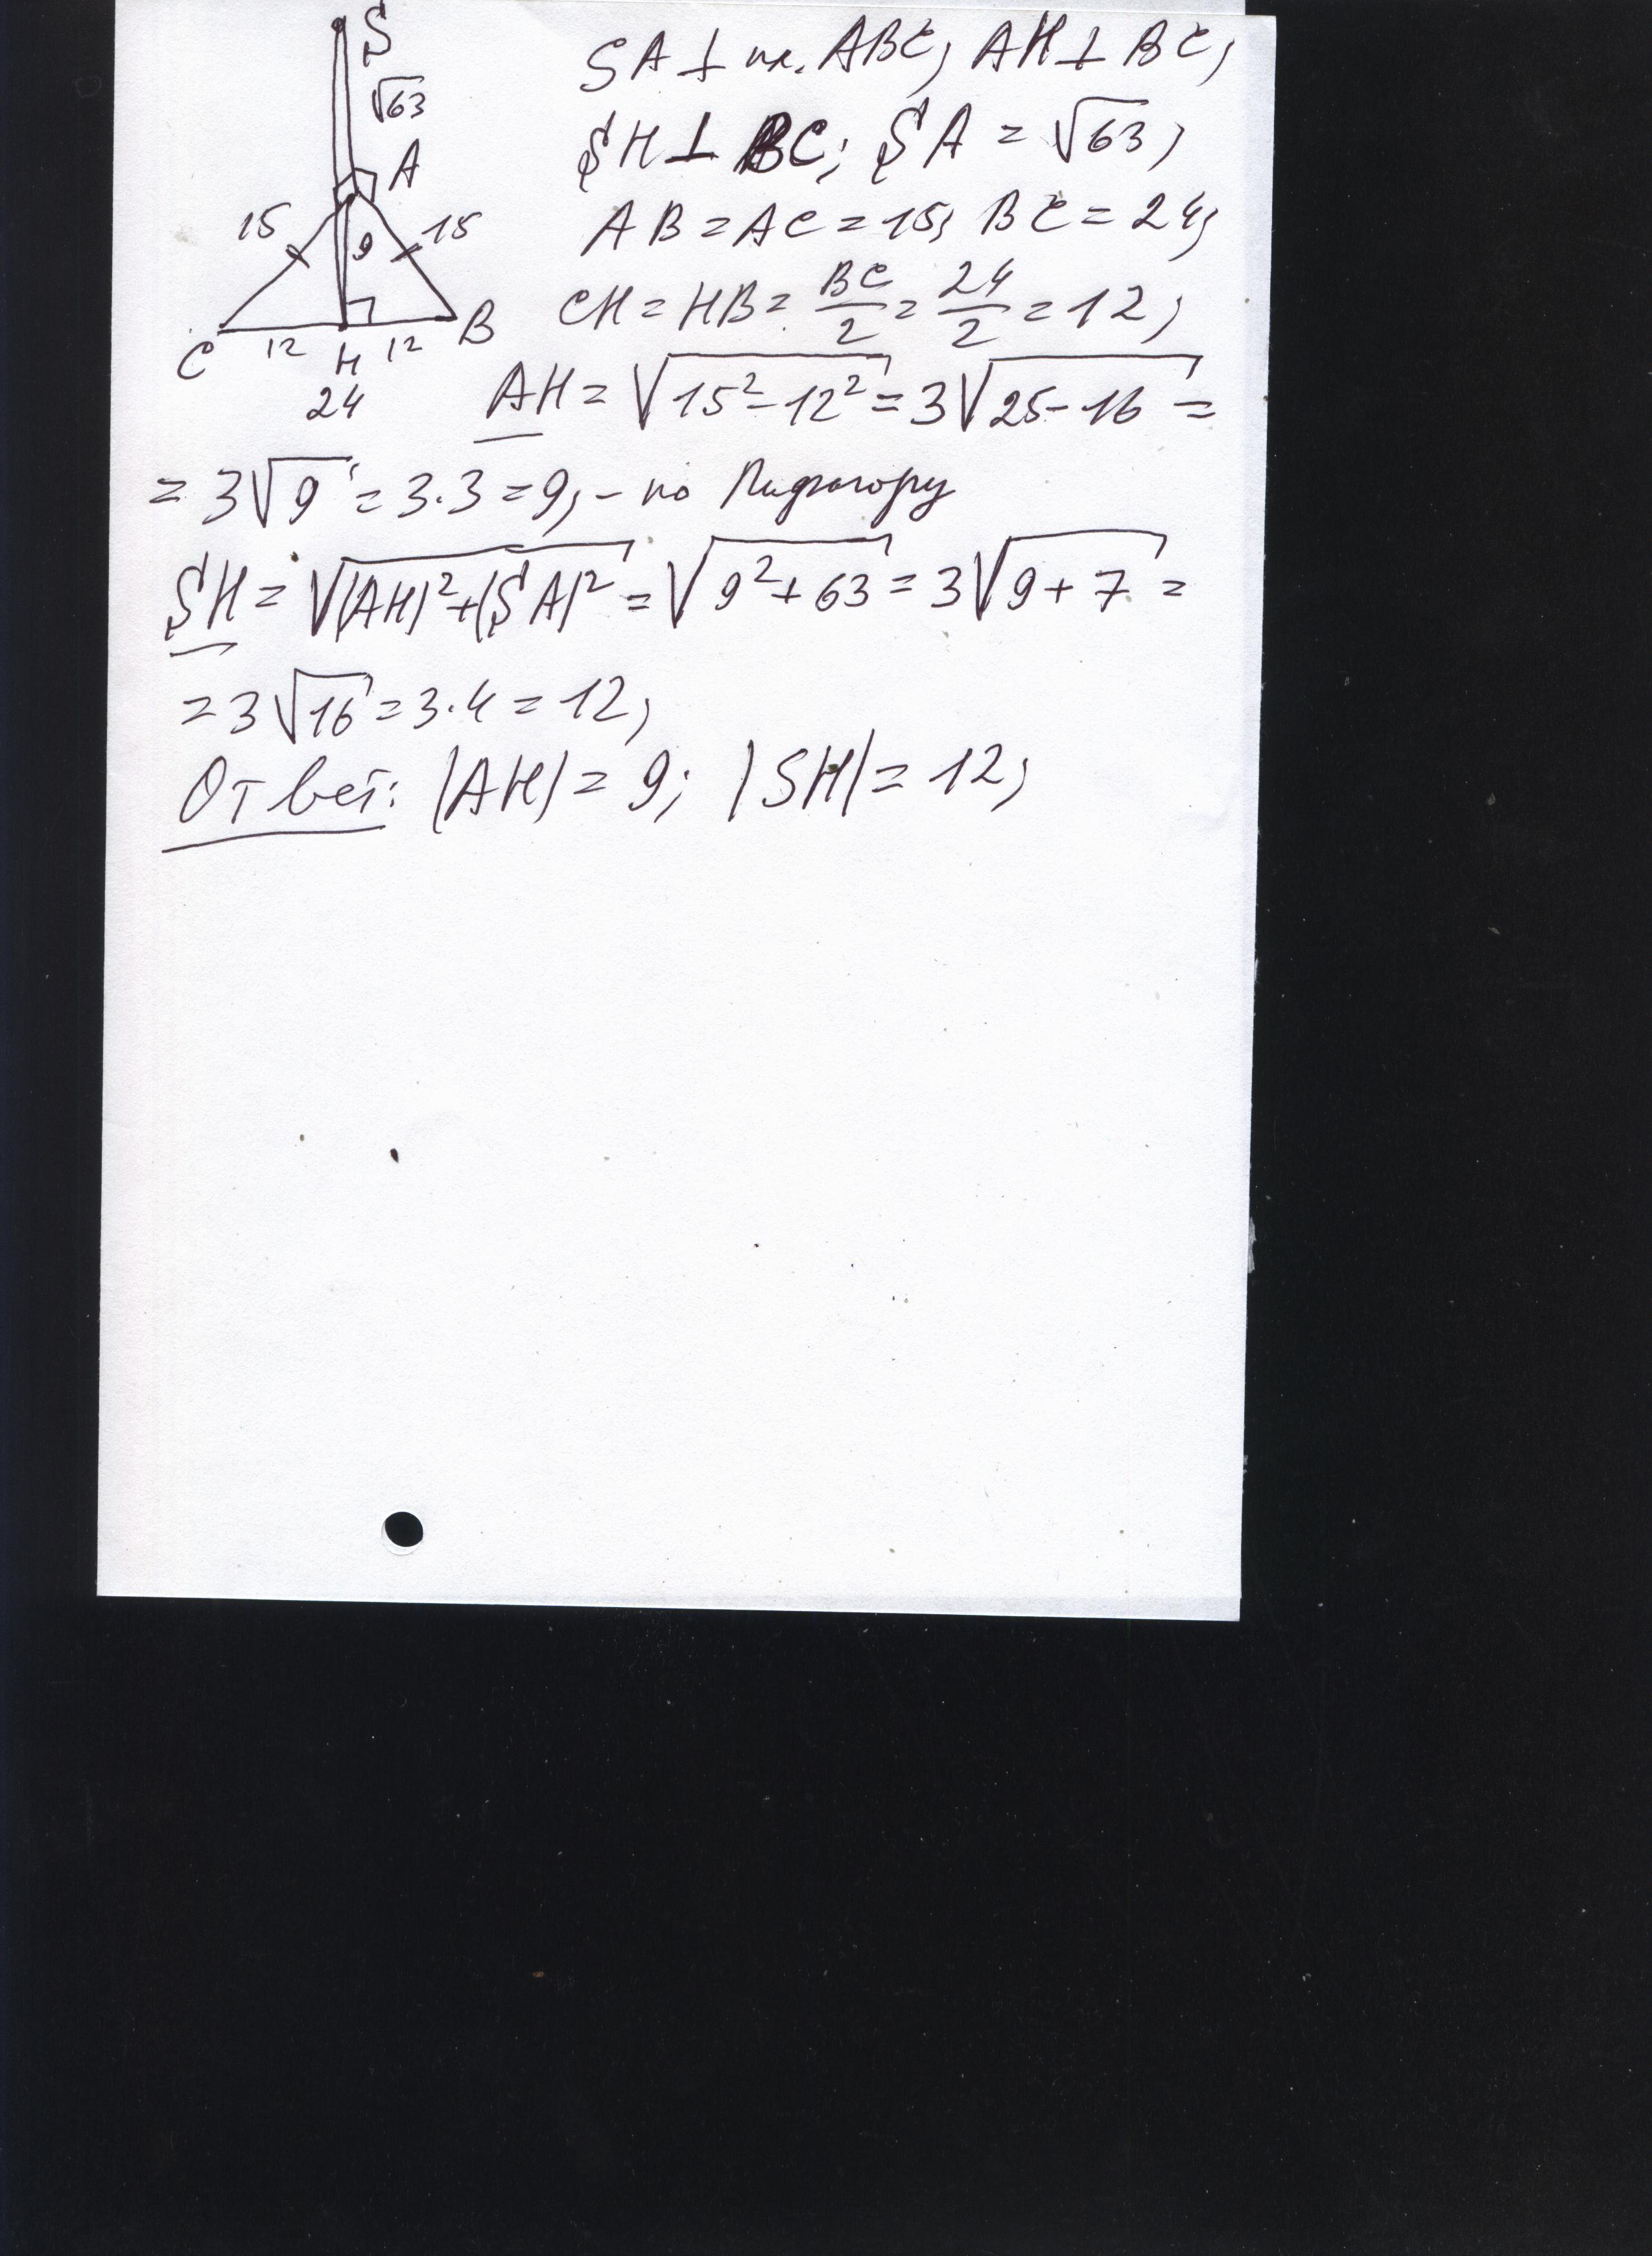 S
√63
A
15
15
9
C
12
H
12
B
24
SA ⊥ пл. ABC, AH ⊥ BC,
SH ⊥ BC; SA = √63,
AB = AC = 15, BC = 24,
CH = HB = BC/2 = 24/2 = 12,
AH = √(15² - 12²) = 3√(25-16) =
= 3√9 = 3·3 = 9, - по Пифагору
SH = √(|AH|² + |SA|²) = √(9² + 63) = 3√(9+7) =
= 3√16 = 3·4 = 12,
Ответ: |AH| = 9; |SH| = 12,